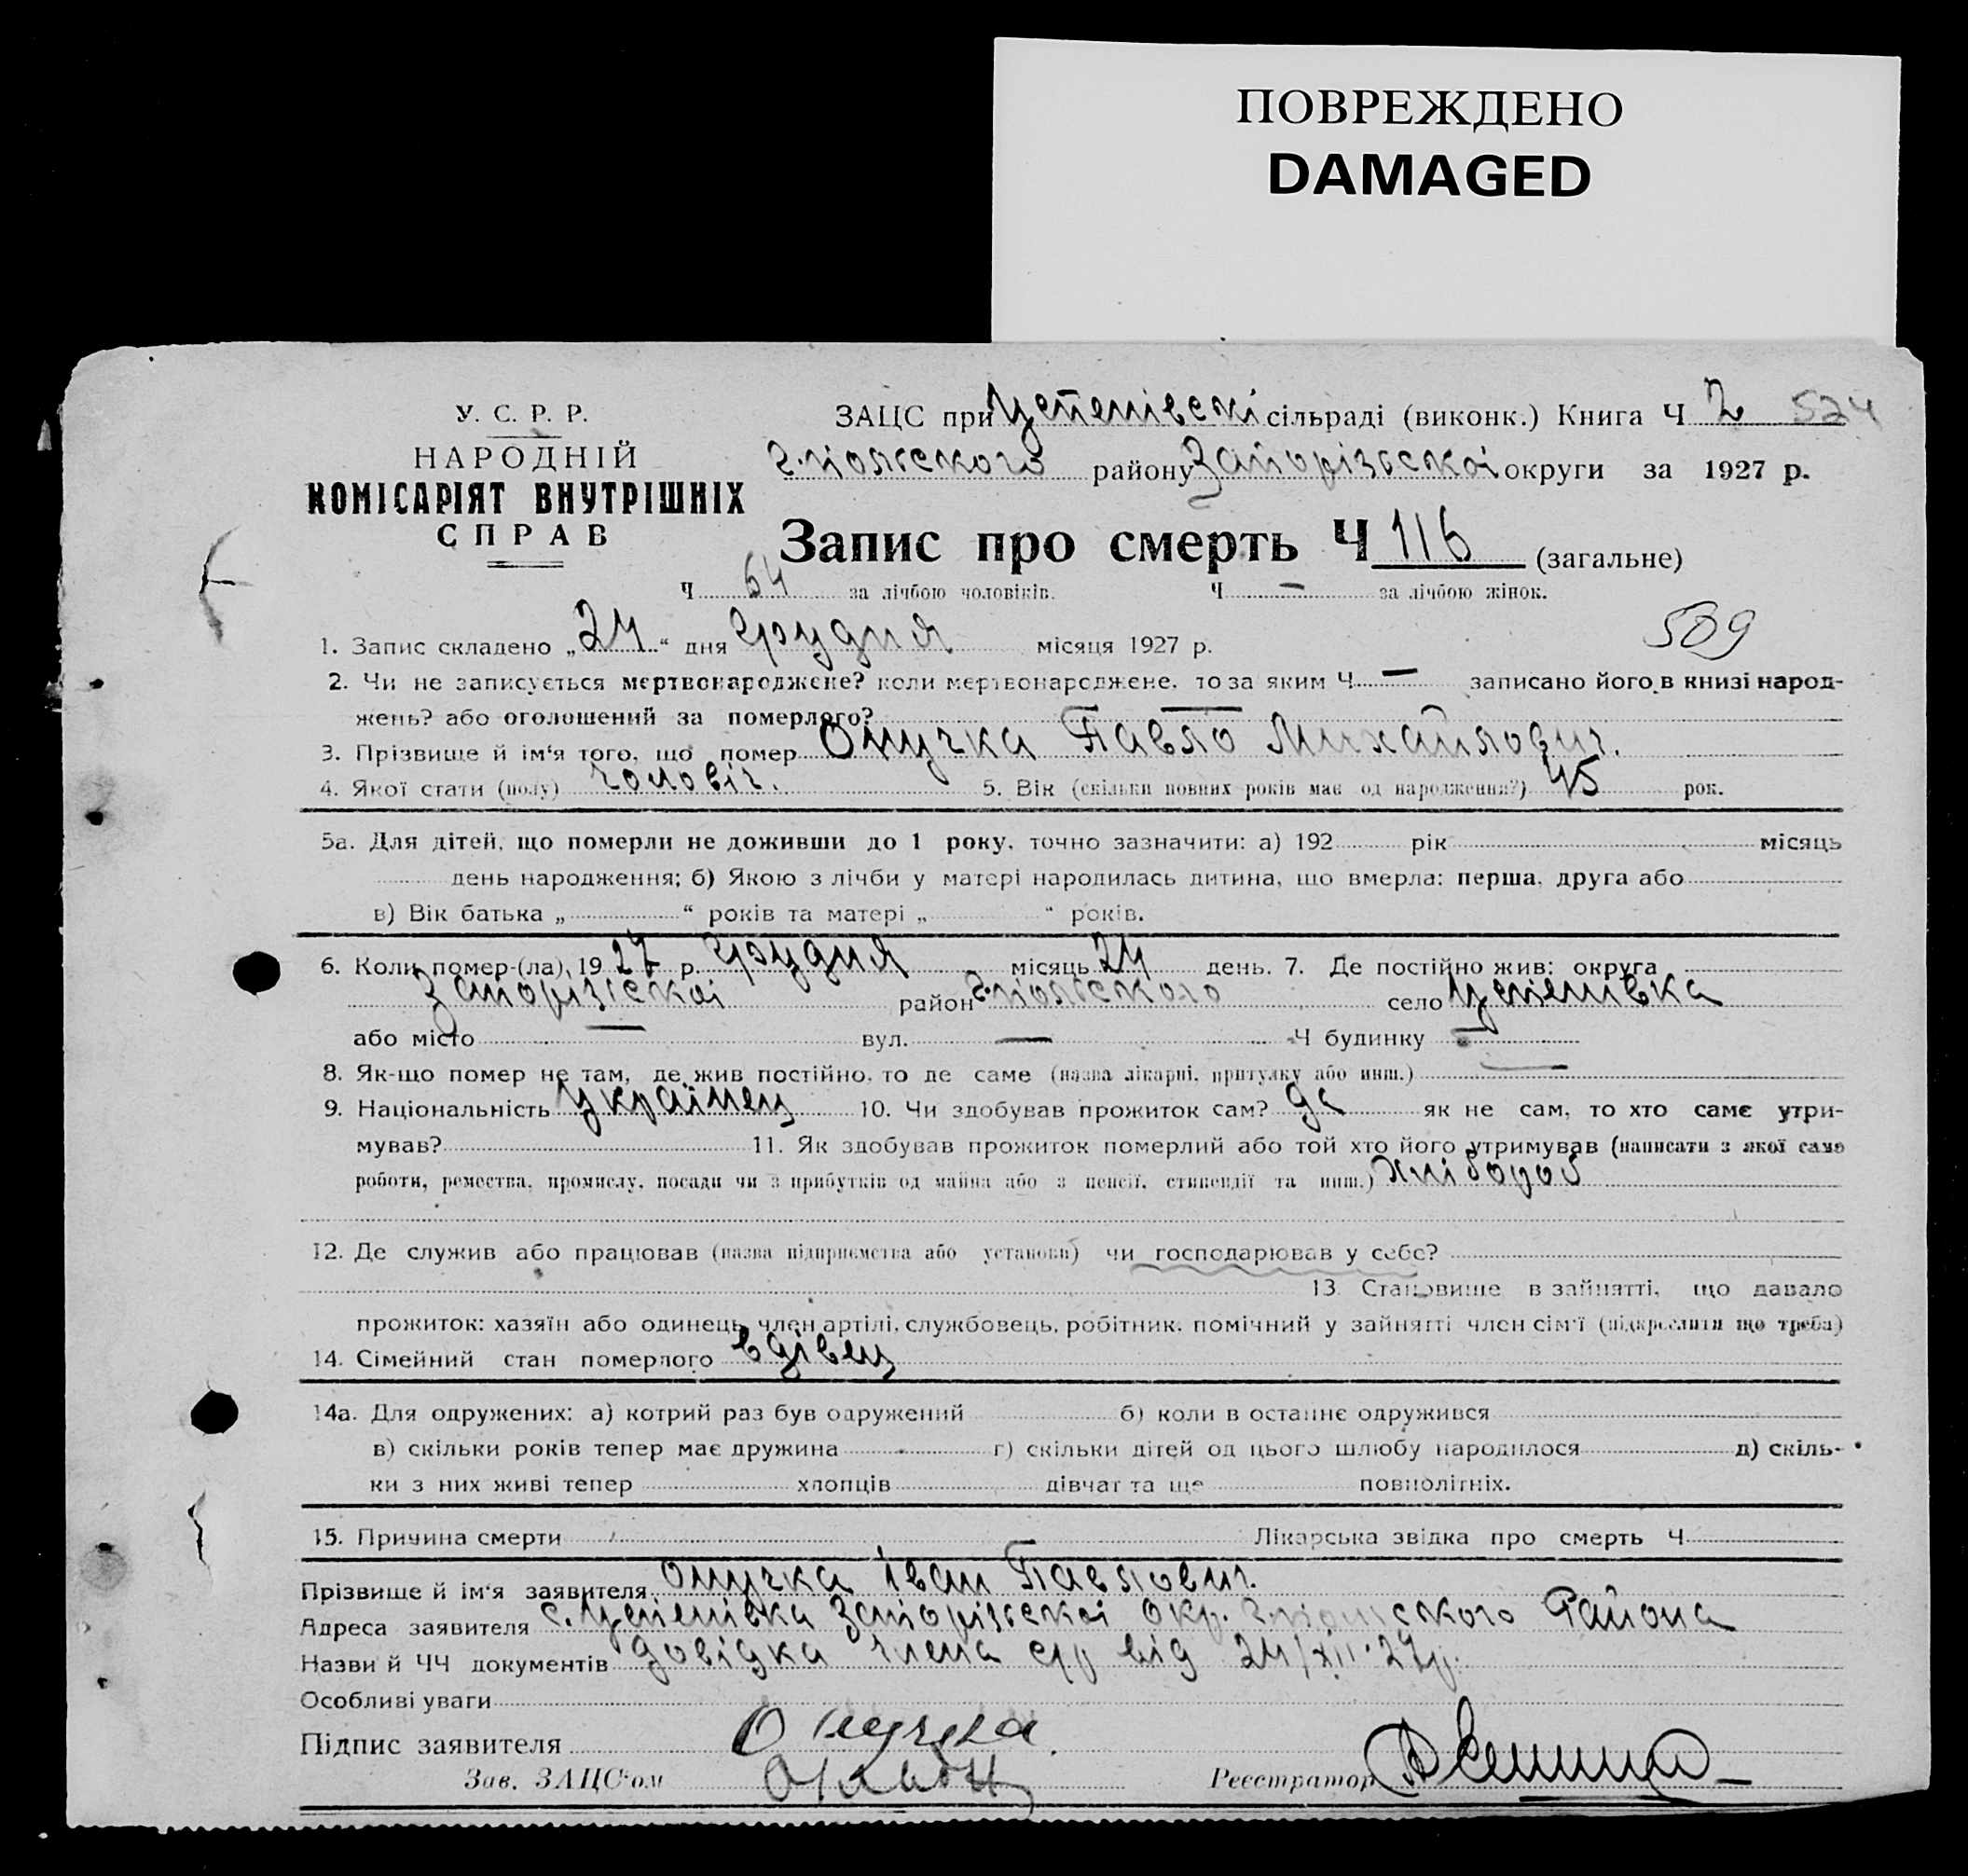 ПОВРЕЖДЕНО
DAMAGED
У. С. Р. Р.
НАРОДНІЙ
КОМІСАРІЯТ ВНУТРІШНІХ
СПРАВ
ЗАЦС при Успенівскі сільраді (виконк.) Книга Ч 2 524
г.-піольского району Запорізьскоі округи за 1927 р.
Запис про смерть Ч 116 (загальне)
Ч 64 за лічбою чоловіків. Ч — за лічбою жінок.
509
1. Запис складено „24“ дня грудня місяця 1927 р.
2. Чи не записується мертвонароджене? коли мертвонароджене, то за яким Ч — записано його в книзі народ-
жень? або оголошений за померлого? —
3. Прізвище й ім‘я того, що помер Онучка Павло Михайлович.
4. Якої стати (полу) чоловіч. 5. Вік (скільки повних років має од народження?) 45 рок.
5а. Для дітей, що померли не доживши до 1 року, точно зазначити: а) 192 рік місяць
день народження; б) Якою з лічби у матері народилась дитина, що вмерла: перша, друга або
в) Вік батька „ “ років та матері „ “ років.
6. Коли помер-(ла), 1927 р. грудня місяць 24 день. 7. Де постійно жив: округа
Запорізьскоі район г.-піольского село Успенівка
або місто — вул. — Ч будинку —
8. Як-що помер не там, де жив постійно, то де саме (назва лікарні, притулку або инш.) —
9. Національність українец 10. Чи здобував прожиток сам? да як не сам, то хто саме утри-
мував? 11. Як здобував прожиток померлий або той хто його утримував (написати з якої само
роботи, ремества, промислу, посади чи з прибутків од майна або з пенсії, стипендії та инш.) хлібороб
12. Де служив або працював (назва підприємства або установи) чи господарював у себе?
13. Становище в зайнятті, що давало
прожиток: хазяїн або одинець, член артілі, службовець, робітник, помічний у зайнятті член сім‘ї (підкреслити що треба)
14. Сімейний стан померлого вдівец
14а. Для одружених: а) котрий раз був одружений б) коли в останнє одружився
в) скільки років тепер має дружина г) скільки дітей од цього шлюбу народилося д) скіль-
ки з них живі тепер хлопців дівчат та ще повнолітніх.
15. Причина смерти Лікарська звідка про смерть Ч
Прізвище й ім‘я заявителя Онучка Іван Павлович.
Адреса заявителя с. Успенівка Запорізьскоі окр. ского Района
Назви й ЧЧ документів довідка члена с/р від 24/XII-27р.
Особливі уваги
Підпис заявителя Онучка
Зав. ЗАЦС‘ом
Реєстратор